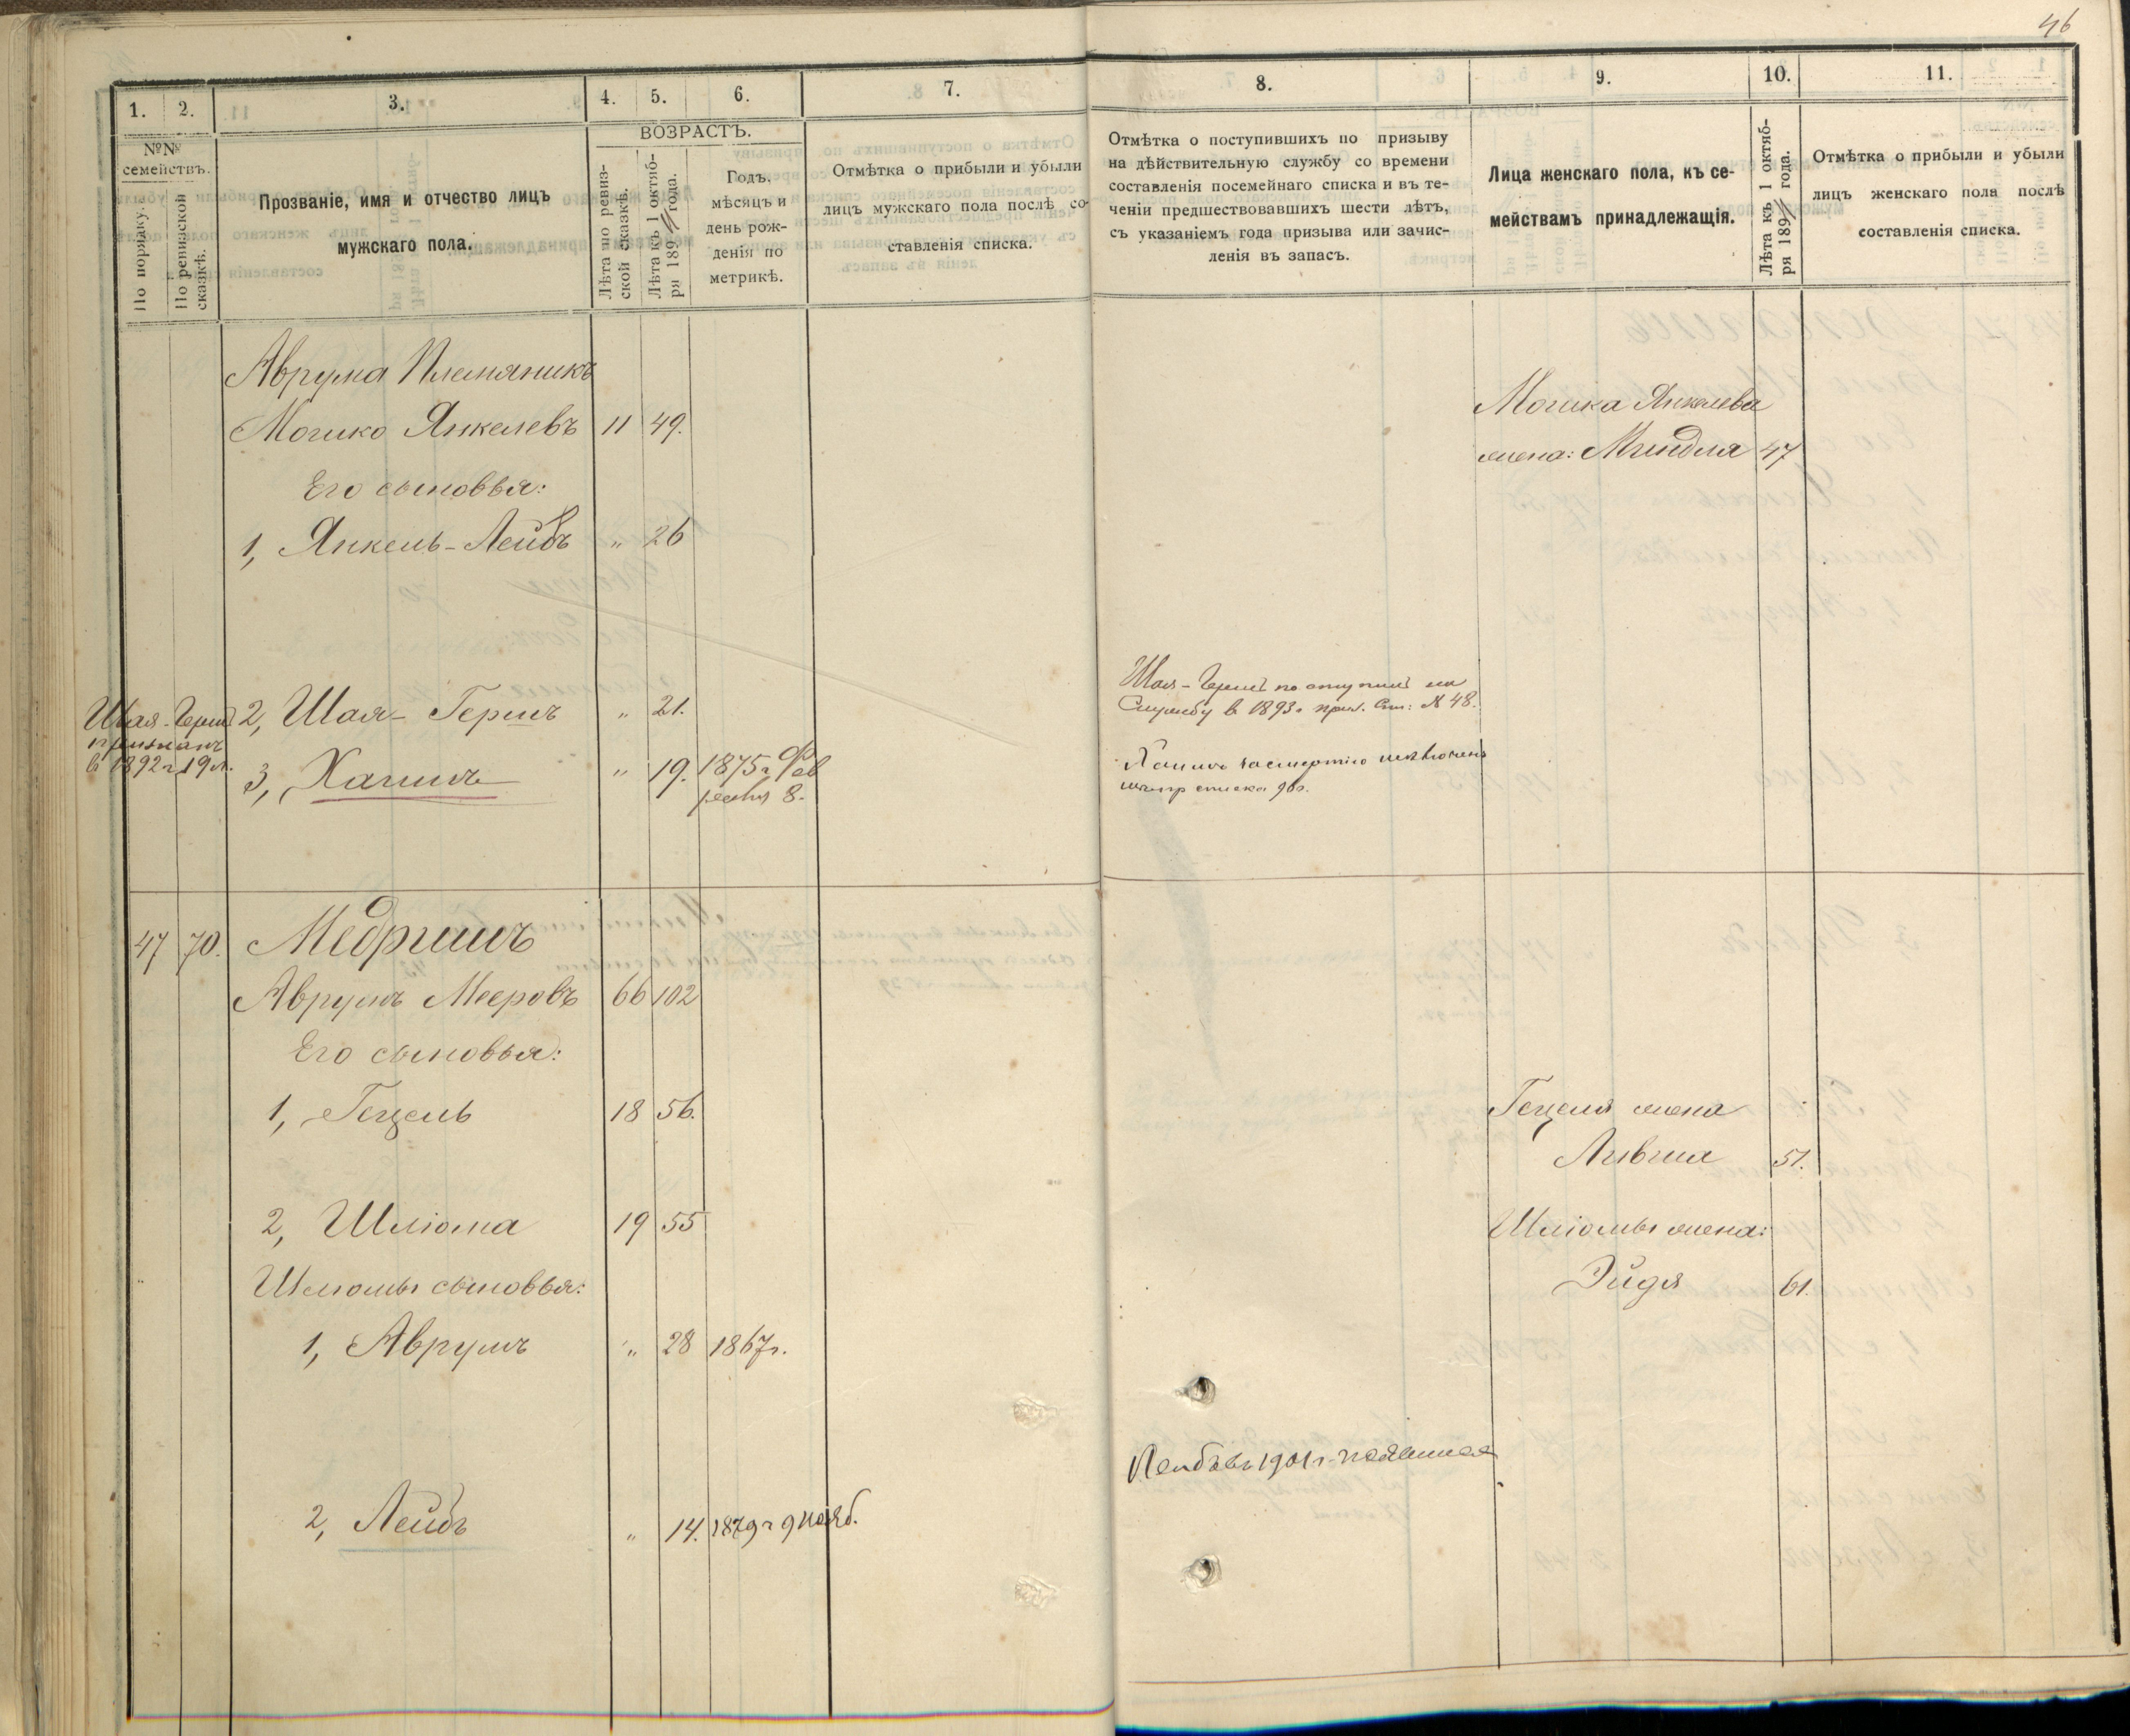 46
1. 2. 3. 4. 5. 6. 7. 8. 9. 10. 11.
№№ семействъ.
По порядку.
По ревизской сказкѣ.
Прозваніе, имя и отчество лицъ
мужскаго пола.
ВОЗРАСТЪ.
Лѣта по ревиз-
ской сказкѣ.
Лѣта къ 1 октяб-
ря 189 года.
Годъ,
мѣсяцъ и
день рож-
денія по
метрикѣ.
Отмѣтка о прибыли и убыли
лицъ мужскаго пола послѣ со-
ставленія списка.
Отмѣтка о поступившихъ по призыву
на дѣйствительную службу со времени
составленія посемейнаго списка и въ те-
ченіи предшествовавшихъ шести лѣтъ,
съ указаніемъ года призыва или зачис-
ленія въ запасъ.
Лица женскаго пола, къ се-
мействамъ принадлежащія.
Лѣта къ 1 октяб-
ря 189 года.
Отмѣтка о прибыли и убыли
лицъ женскаго пола послѣ
составленія списка.
Аврума Племяникъ
Мошко Янкелевъ 11 49.
Мошка Янкелева
жена: Миндля 47
Его сыновья:
1, Янкель-Лейбъ " 26
Шая-Гершъ
признанъ
в 1892 г 19 л.
2, Шая-Гершъ " 21.
Шая-Гершъ поступил на
Службу в 1893 г приз. Сп: № 48.
3, Хаимъ " 19. 1875 г Фев
раля 8.
Хаимъ за смертію исключенъ
списка 96 г.
47 70. Медришъ
Аврумъ Мееровъ 66 102
Его сыновья:
1, Гецель 18 56.
Гецеля жена
Лившa 51.
2, Шліома 19 55
Шліомы жена:
Эйдя 61.
Шліомы сыновья:
1, Аврумъ " 28 1867 г.
Лейбъ въ 1901 г. не явился
2, Лейбъ " 14. 1879 г 9 нояб.